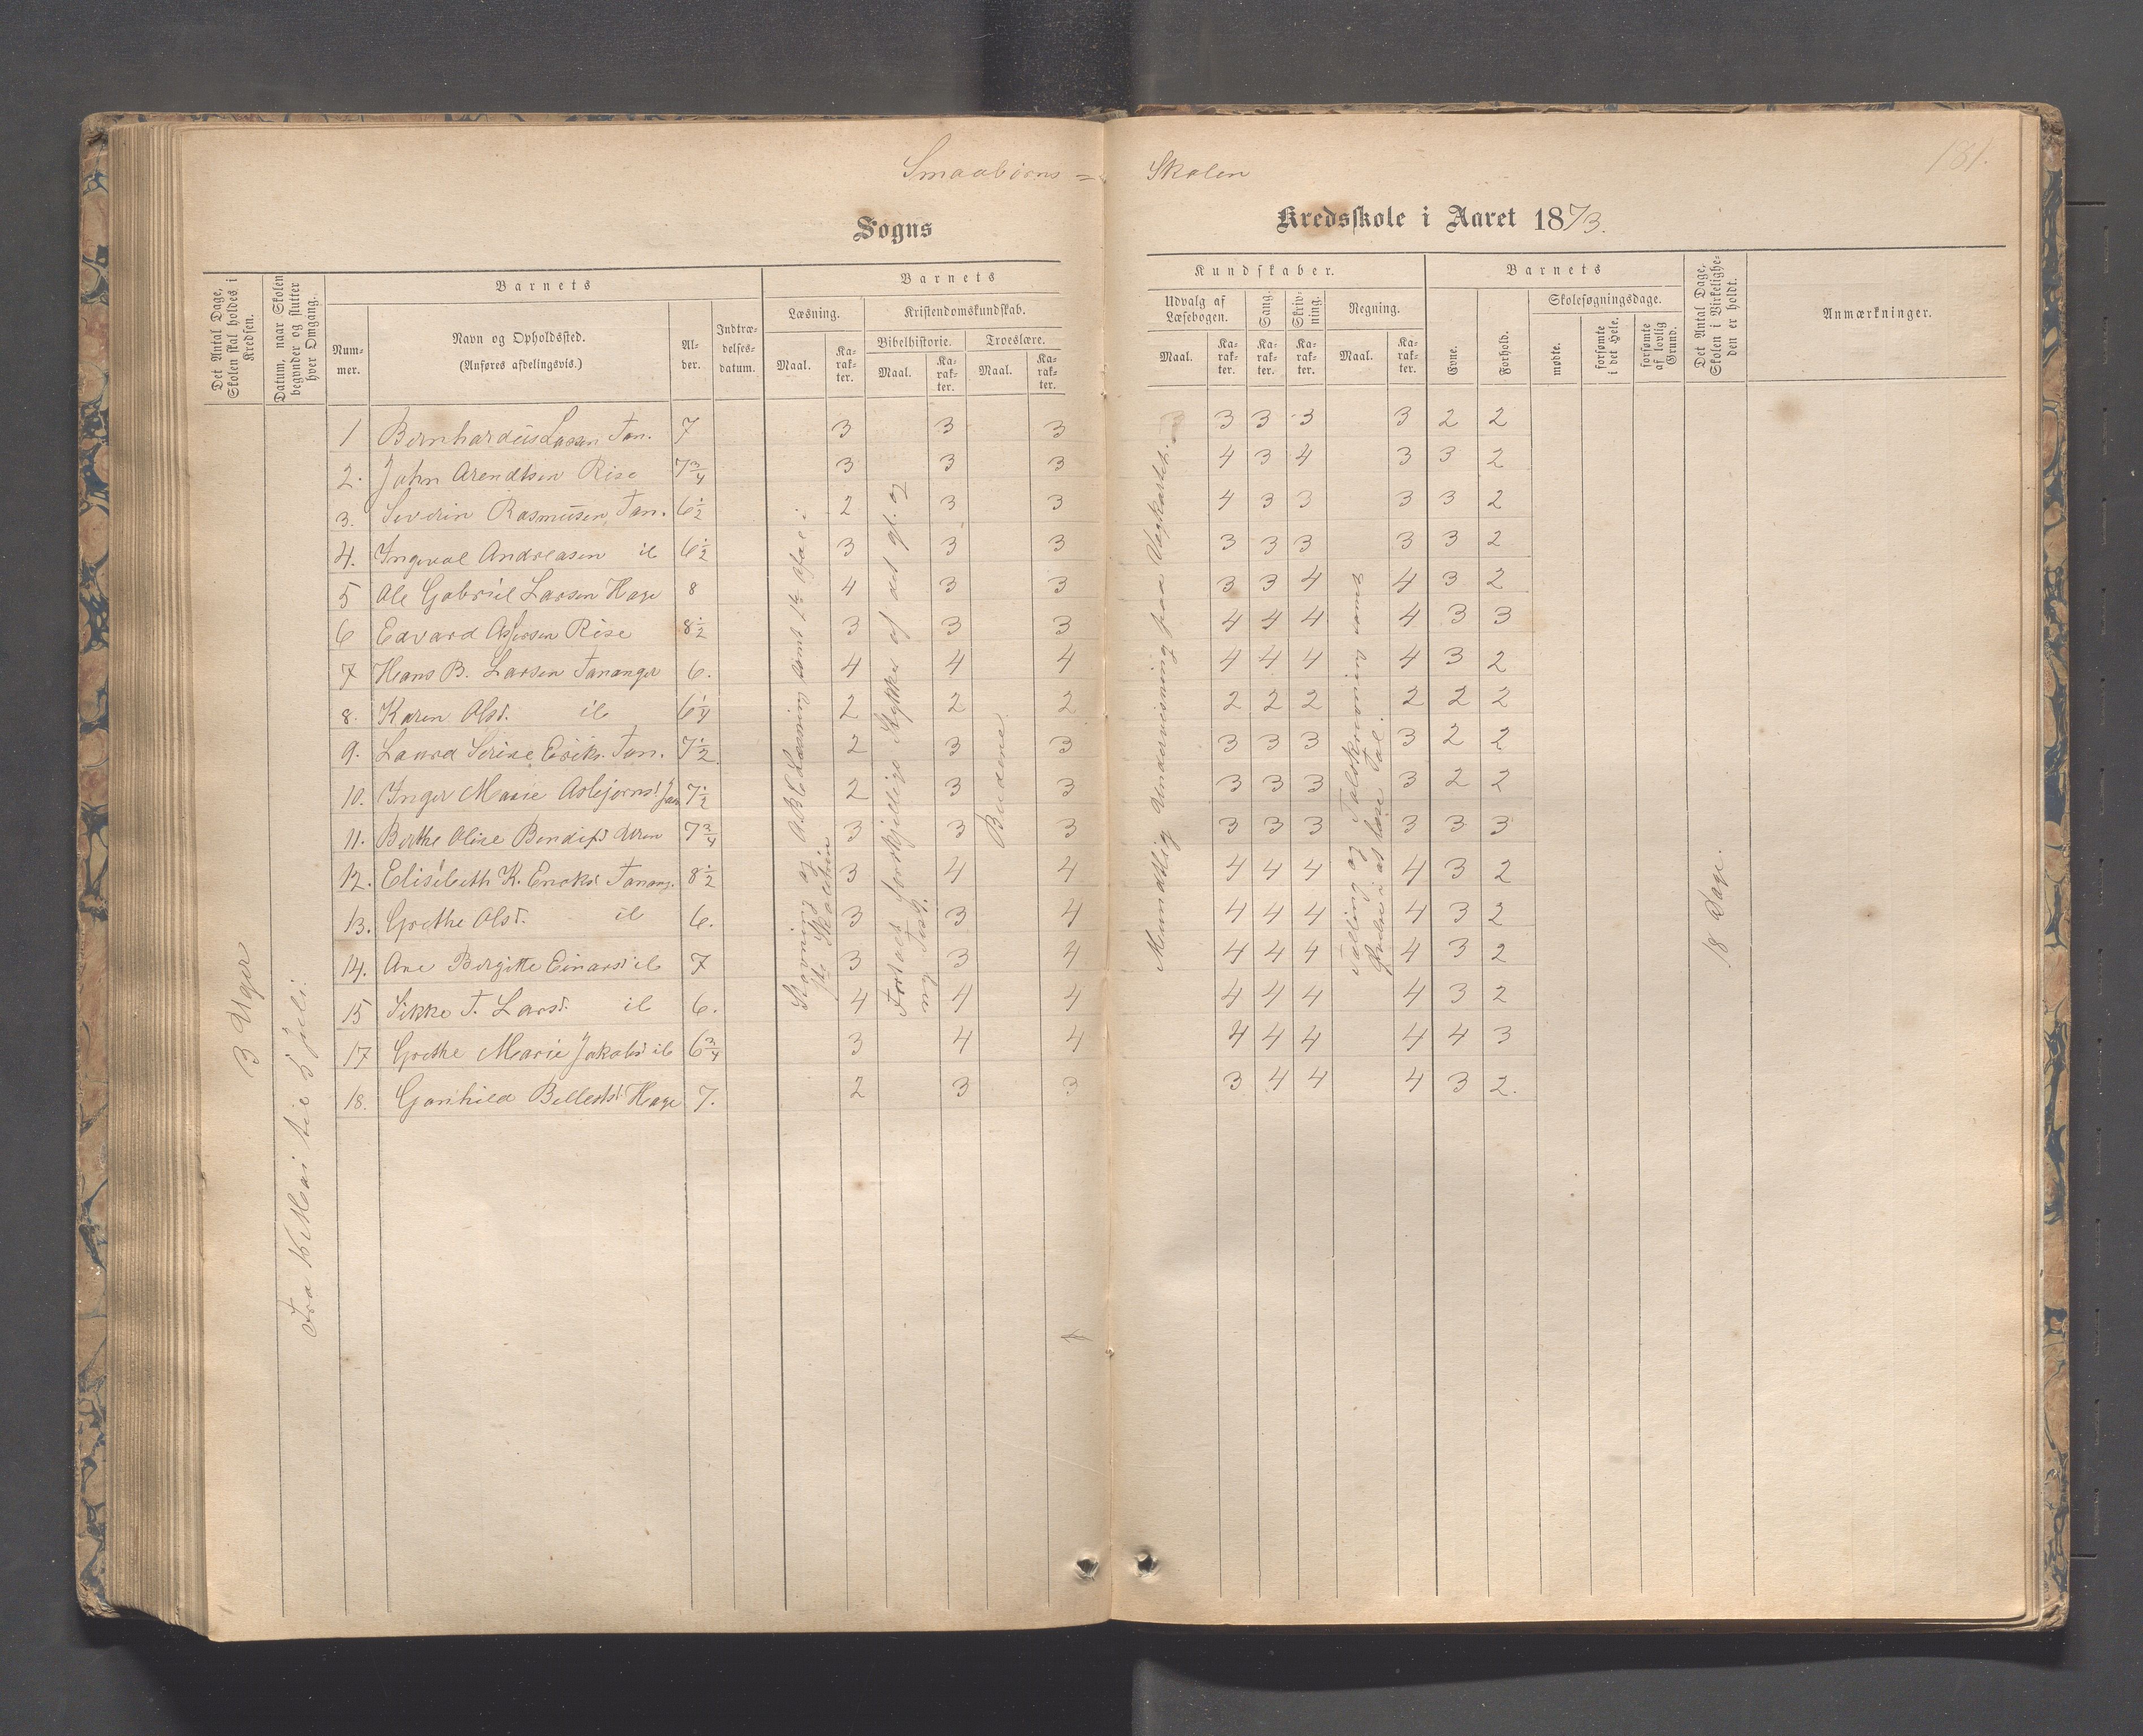 Smaabörns = Skolen
131.
Sogns Kredsskole i Aaret 1873.
Det Antal Dage, Skolen skal holdes i Kredsen.
Datum, naar Skolen begynder og slutter hver Omgang.
Barnets
Nummer.
Navn og Opholdssted.
(Anføres afdelingsvis.)
Alder.
Indtrædelsesdatum.
Barnets
Læsning.
Maal.
Karakter.
Kristendomskundskab.
Bibelhistorie.
Maal.
Karakter.
Troeslære.
Maal.
Karakter.
Kundskaber.
Udvalg af Læsebogen.
Maal.
Karakter.
Sang.
Karakter.
Skrivning.
Karakter.
Regning.
Maal.
Karakter.
Barnets
Evne.
Forhold.
Skolesøgningsdage.
mødte.
forsømte i det Hele.
forsømte af lovlig Grund.
Det Antal Dage, Skolen i Virkeligheden er holdt.
Anmærkninger.
3 Uger
1 Bernhardus Larsen Tan. 7 3 3 3 3 3 3 3 2 2
2. John Arendtsen Rise 7 3/4 3 3 3 4 3 4 3 3 2
3. Severin Rasmusen Tan. 6 1/2 2 3 3 4 3 3 3 3 2
4. Ingval Andreasen ib 6 1/2 3 3 3 3 3 3 3 3 2
5 Ole Gabriel Larsen Hage 8 4 3 3 3 3 4 4 3 2
6 Edvard Rise 8 1/2 3 3 3 4 4 4 4 3 3
7 Hans B. Larsen Tananger 6. 4 4 4 4 4 4 4 3 2
8. Karen Olsd. ib 6 1/4 2 2 2 2 2 2 2 2 2
9. Laura Serine Eriks. Tan. 7 1/2 2 3 3 3 3 3 3 2 2
10. Inger Marie Asbjørnsd. Tan 7 1/2 2 3 3 3 3 3 3 2 2
11. Berthe Oline 7 3/4 3 3 3 3 3 3 3 3 3
12. Elisebeth K. Tanang. 8 1/2 3 4 4 4 4 4 4 3 2
13. Grethe Olsd. ib 6. 3 3 4 4 4 4 4 3 2
14. Ane Birgitte Einarsd ib 7 3 3 4 4 4 4 4 3 2
15 Sikke T. Larsd. ib 6. 4 4 4 4 4 4 4 3 2
17 Grethe Marie Jakobsd ib 6 3/4 3 4 4 4 4 4 4 4 3
18. Gunhild Hage 7. 2 3 3 3 4 4 4 3 2.
Stavning og ABC Læsning samt
Forskjellige Stykker af det gl. og ny Test.
Budene
Mundtlig Undervisning paa Vægkartet.
Tælling og Talskrivning samt Øvelse i at læse Tal.
18 Dage.